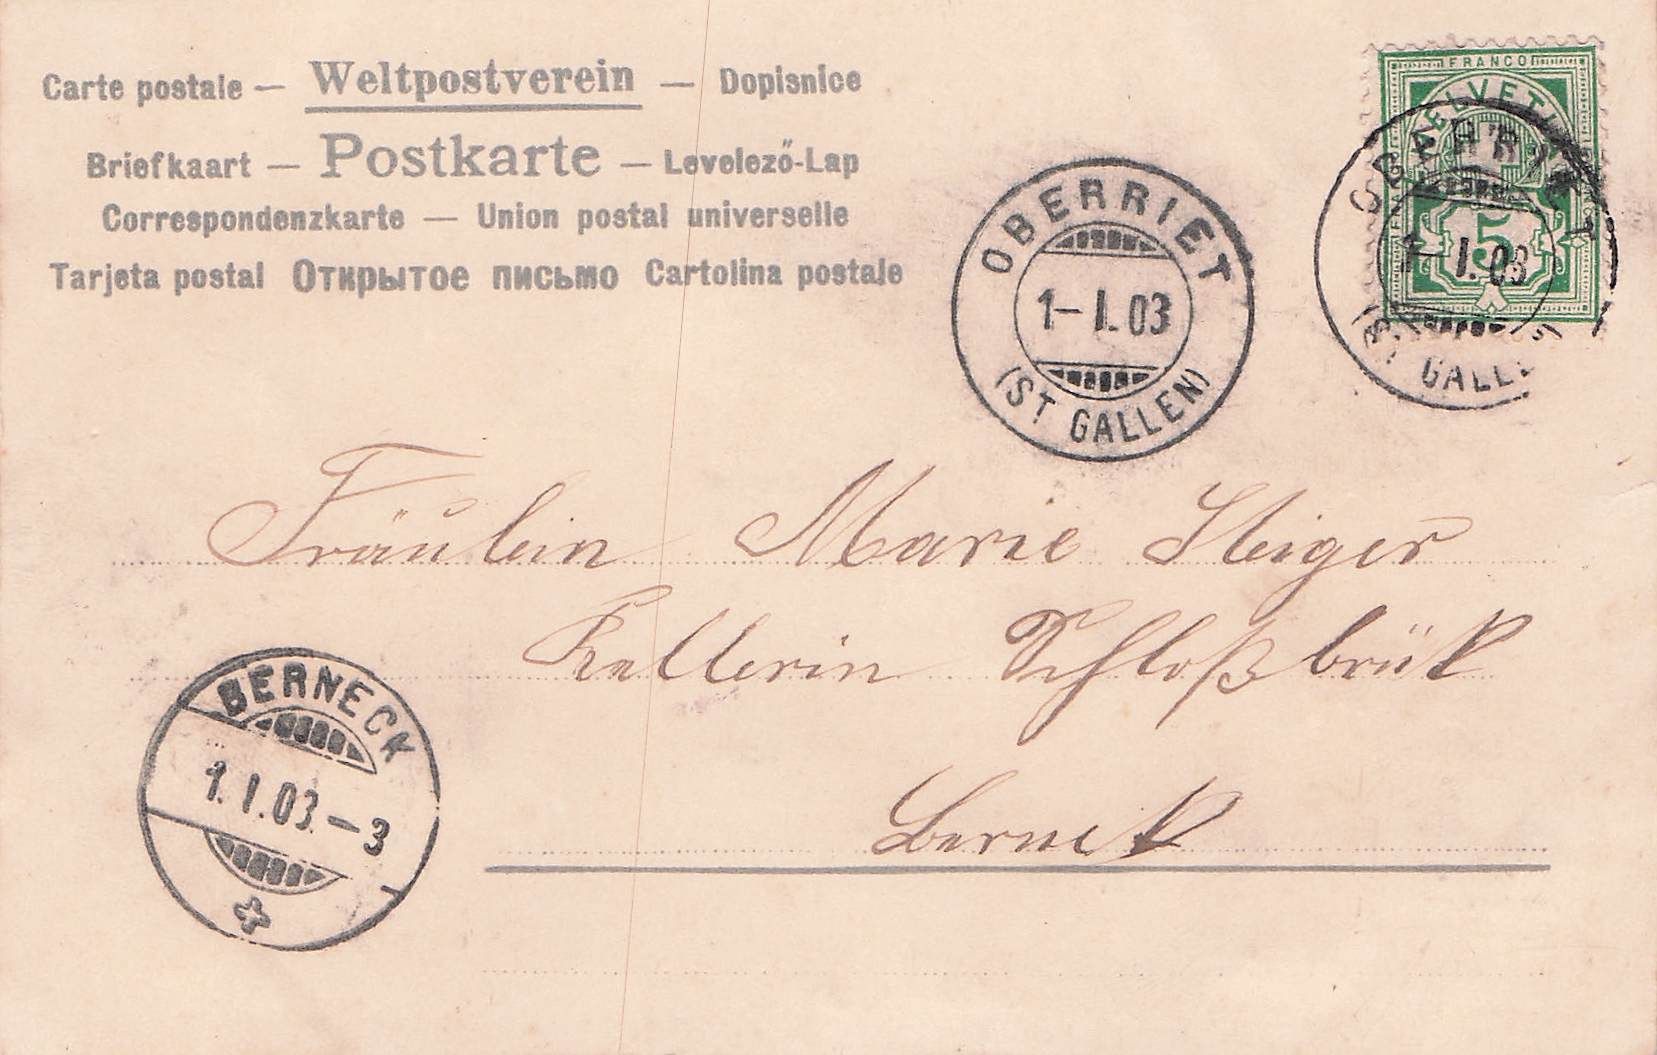 Carte postale — Weltpostverein — Dopisnice
Briefkaart — Postkarte — Levelező-Lap
Correspondenzkarte — Union postal universelle
Tarjeta postal Открытое письмо Cartolina postale
FRANCO
HELVETIA
5
1 - I. 03
(ST GALLEN)
OBERRIET
1 - I. 03
(ST GALLEN)
Fräulein Marie Steiger
Kellerin Schloßbrük
Bernek
BERNECK
1. I. 03. - 3